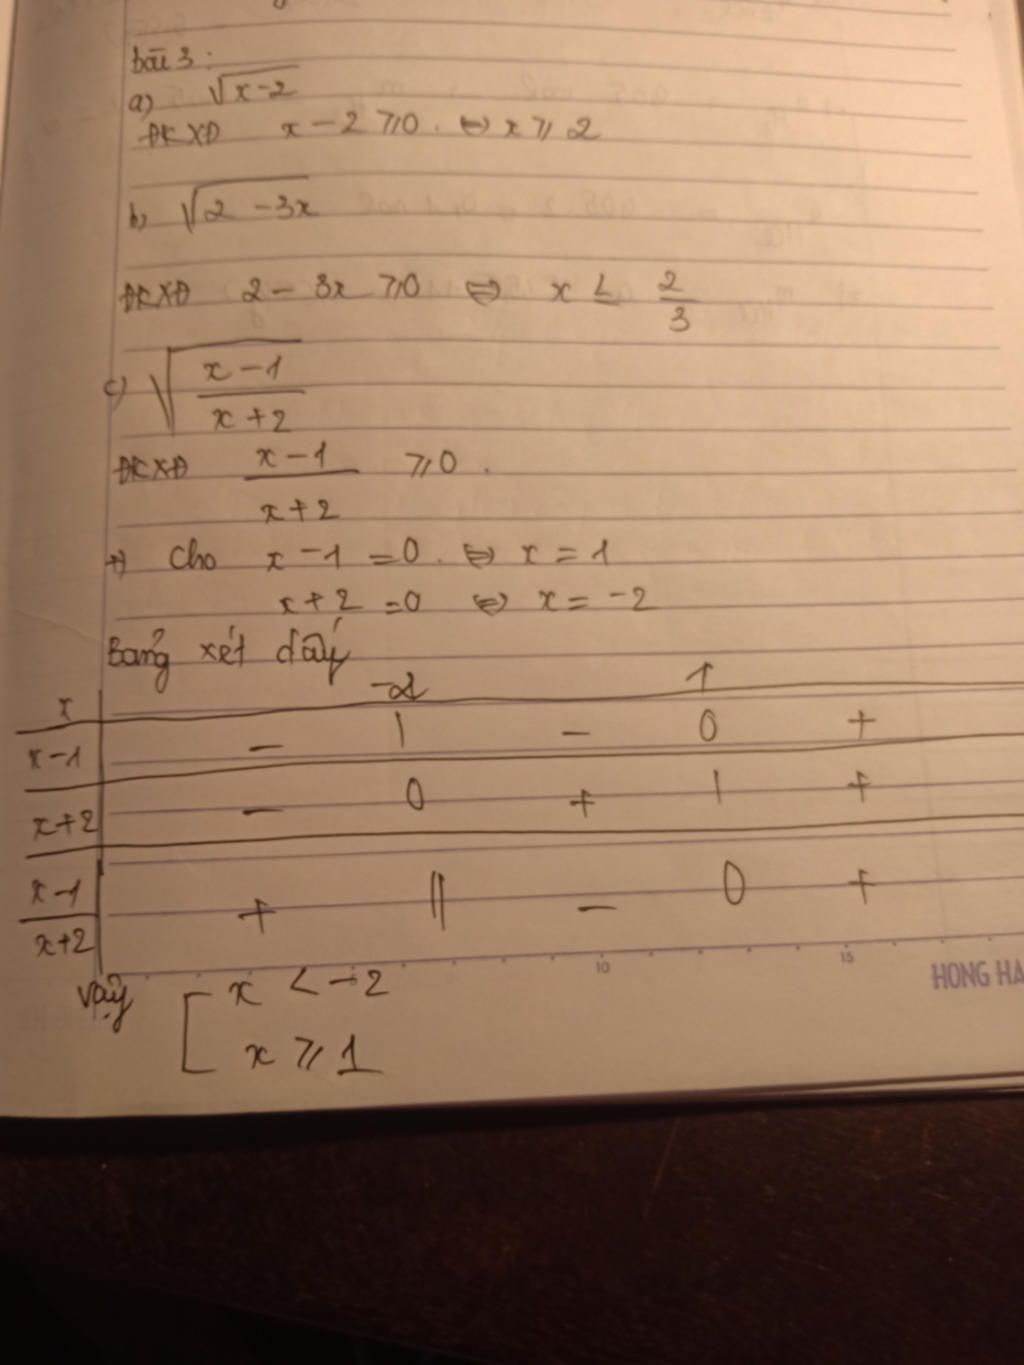 bài 3 :
a) √x-2
ĐKXĐ x - 2 ⩾ 0 . ⇔ x ⩾ 2
b) √2 - 3x
ĐKXĐ 2 - 3x ⩾ 0 ⇔ x ≤ 2/3
c) √(x-1)/(x+2)
ĐKXĐ (x-1)/(x+2) ⩾ 0 .
+) Cho x - 1 = 0 . ⇔ x = 1
x + 2 = 0 ⇔ x = -2
Bảng xét dấu
x -2 1
x-1 - | - 0 +
x+2 - 0 + | +
(x-1)/(x+2) + || - 0 +
10 15 HONG HA
Vậy [ x < -2
x ⩾ 1